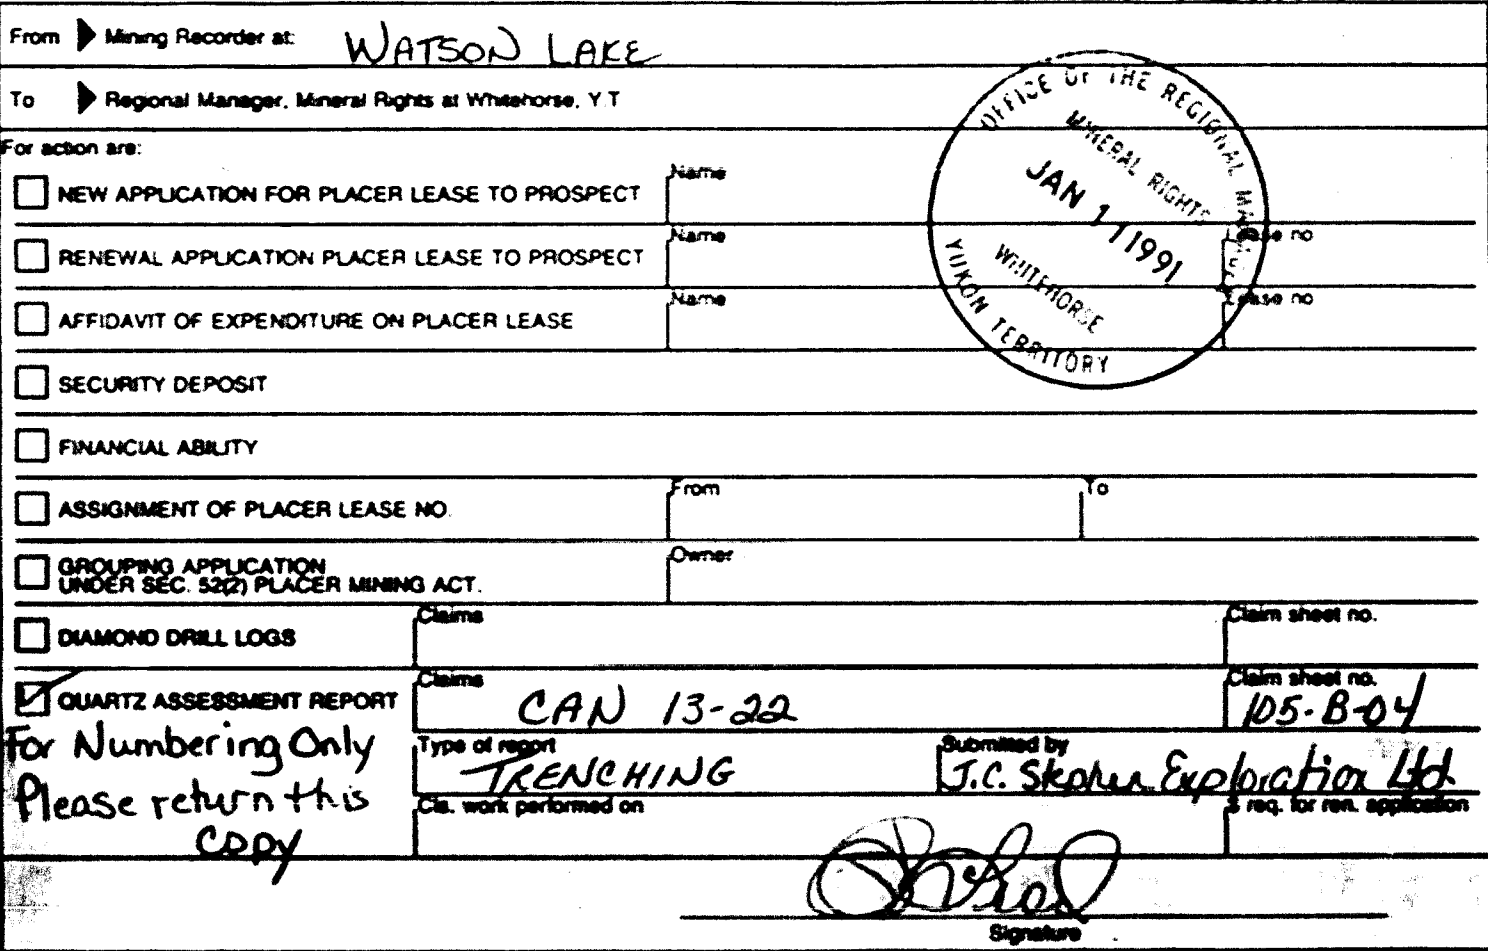 From Mining Recorder at: WATSON LAKE
To Regional Manager, Mineral Rights at Whitehorse, Y.T
OFFICE OF THE REGIONAL MANAGER
MINERAL RIGHTS
JAN 11 1991
WHITEHORSE
YUKON TERRITORY
For action are:
NEW APPLICATION FOR PLACER LEASE TO PROSPECT Name
RENEWAL APPLICATION PLACER LEASE TO PROSPECT Name Lease no
AFFIDAVIT OF EXPENDITURE ON PLACER LEASE Name Lease no
SECURITY DEPOSIT
FINANCIAL ABILITY
ASSIGNMENT OF PLACER LEASE NO. From To
GROUPING APPLICATION Owner
UNDER SEC. 52(2) PLACER MINING ACT.
DIAMOND DRILL LOGS Claims Claim sheet no.
QUARTZ ASSESSMENT REPORT Claims CAN 13-22 Claim sheet no. 105-B-04
For Numbering Only
Please return this
copy
Type of report TRENCHING Submitted by J.C. Stephen Exploration Ltd
Cls. work performed on $ req. for ren. application
Signature